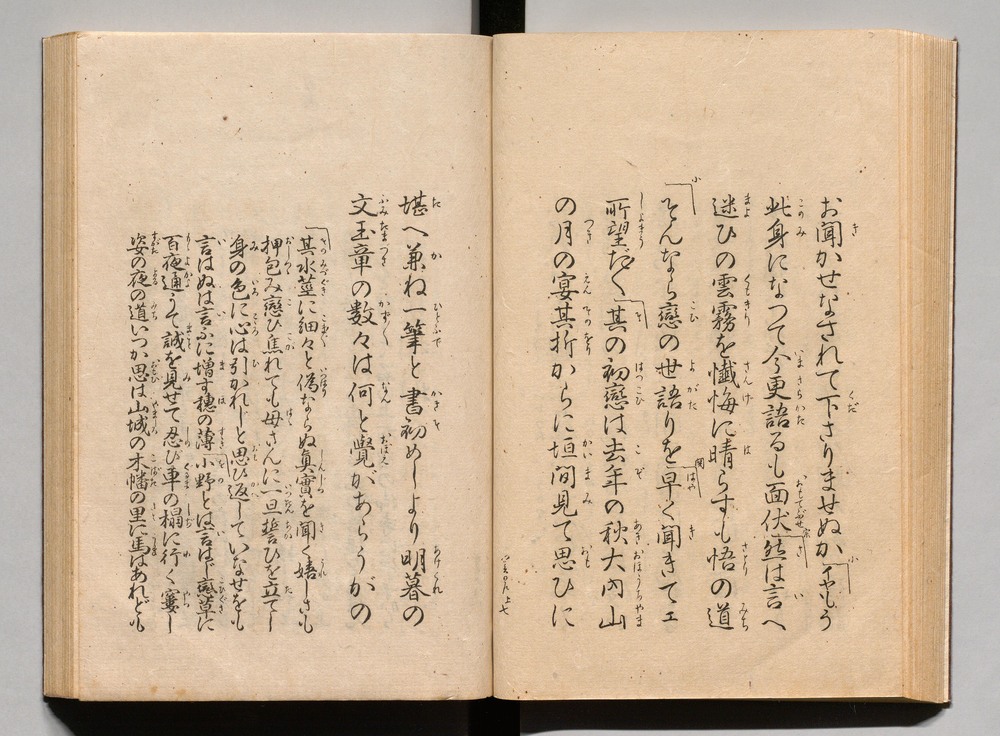 お聞かせなされて下さりませぬか「イヤもう
此身になつて今更語るも面伏「然は言へ
迷ひの雲霧を懺悔に晴らすも悟の道
「そんなら戀の世語りを「早く聞きてエ
所望だ〱「其の初戀は去年の秋大内山
の月の宴其折からに垣間見て思ひに
堪へ兼ね一筆と書初めしより明暮の
文玉章の数々は何と覺があらうがの
「其水莖に細々と偽ならぬ眞實を聞く嬉しさも
押包み戀ひ焦れても母さんに一旦誓ひを立てし
身の色に心は引かれじと思ひ返していなせをも
言はぬは言ふに増す穂の薄「小野とは言はじ戀草に
百夜通うて誠を見せて忍び車の榻に行く窶し
姿の夜の道いつか思は山城の木幡の里に馬はあれども